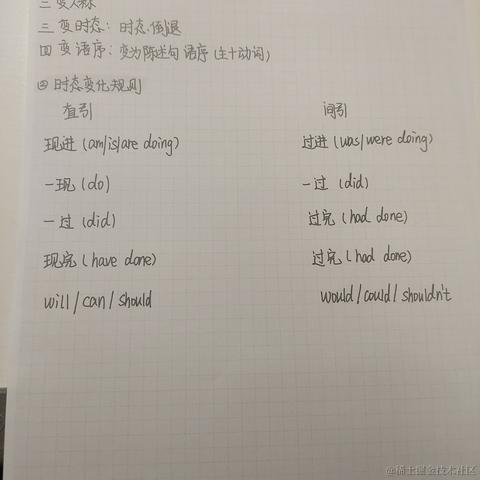 三 变人称
三 变时态：时态倒退
四 变语序：变为陈述句语序（主+动词）
④ 时态变化规则
直引 间引
现进（am/is/are doing） 过进（was/were doing）
一现（do） 一过（did）
一过（did） 过完（had done）
现完（have done） 过完（had done）
will/can/should would/could/shouldn't
@稀土掘金技术社区